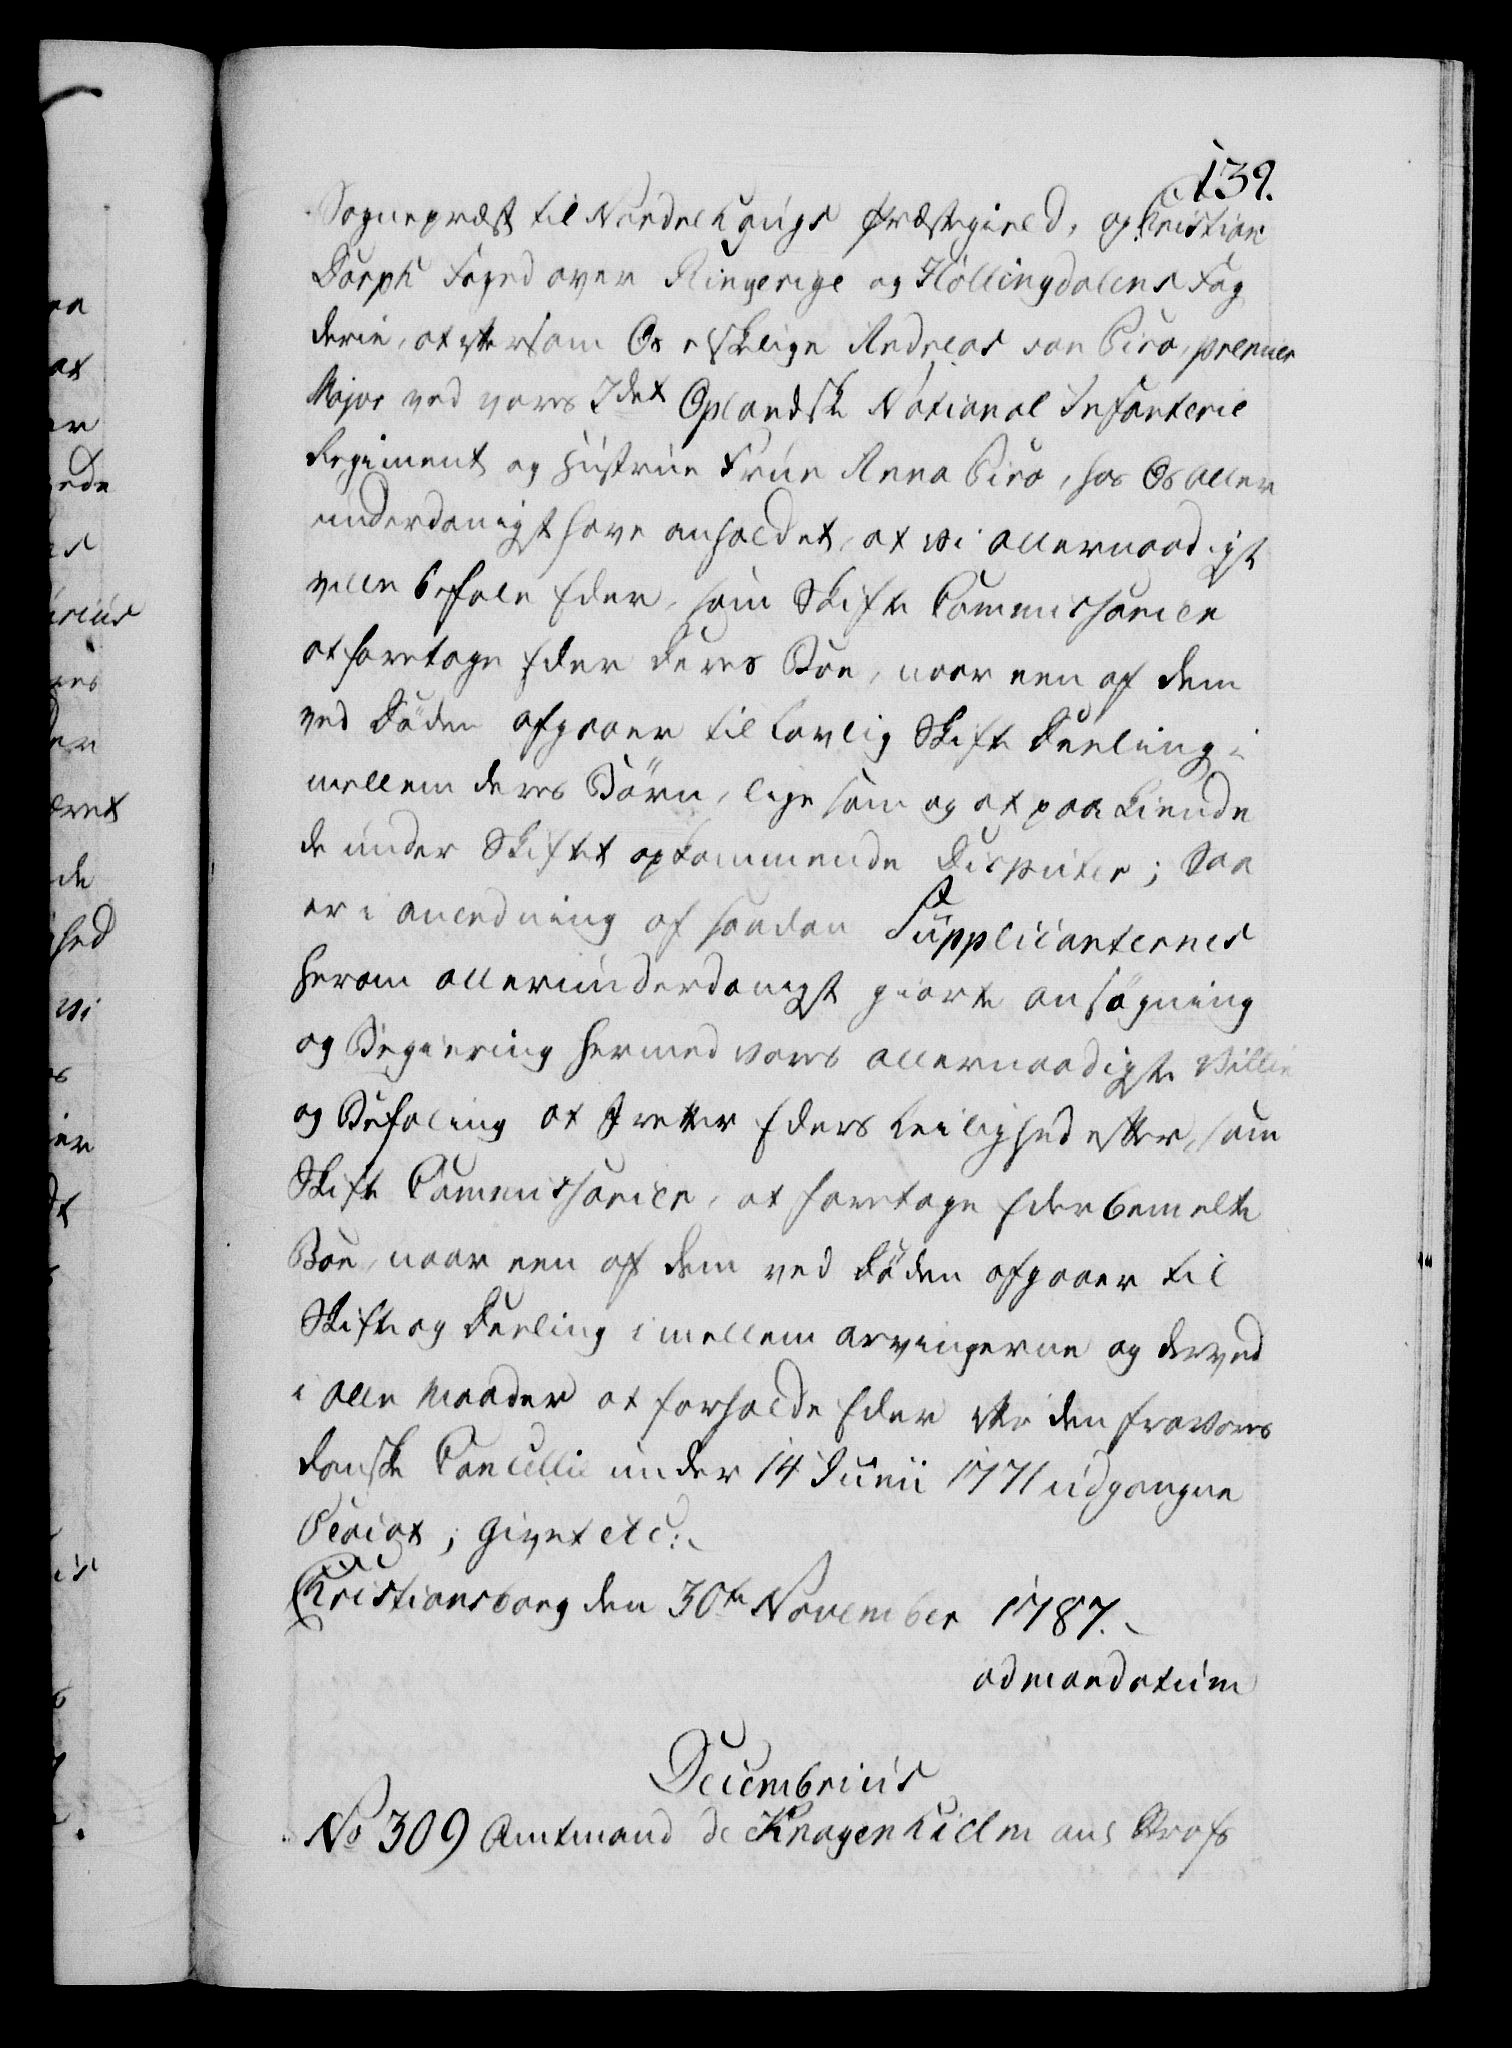 139.
Sognepræst til Nordrehougs Præstegield, og Christian
Dorph Foged over Ringerige og Hallingdalens Fog
derie, at eftersom Os elskelige Andreas von Biro, premier
Major ved vores 2det Oplandsk National Infanterie
Regiment og Hustrue Frue Anna Biro, hos Os aller
underdanigst have anholdet, at vi allernaadigst
ville befale Eder, som Skifte Commissarier
at foretage Eder deres Boe, naar een af dem
ved Döden afgaaer til lovlig Skifte Deeling i
mellem deres Börn, lige som og at paa kiende
de under Skiftet opkommende Disputer; Saa
er i anledning af saadan Supplicanternes
herom allerunderdanigst giorte ansøgning
og Begiering hermed vores allernaadigste Villie
og Befaling at I retter Eders Leilighed efter, som
Skifte Commissarier, at foretage Eder bemelte
Boe, naar een af dem ved Döden afgaaer til
Skifte og Deeling imellem arvingerne og derved
i alle Maader at forholde Eder efter den fra vores
danske Cancellie under 14 Junii 1771 udgangne
Placat; Givet etc:
Christiansborg den 30te November 1787.
ad mandatum
Decembrius
No 309 Amtmand de Knagenhielm ans